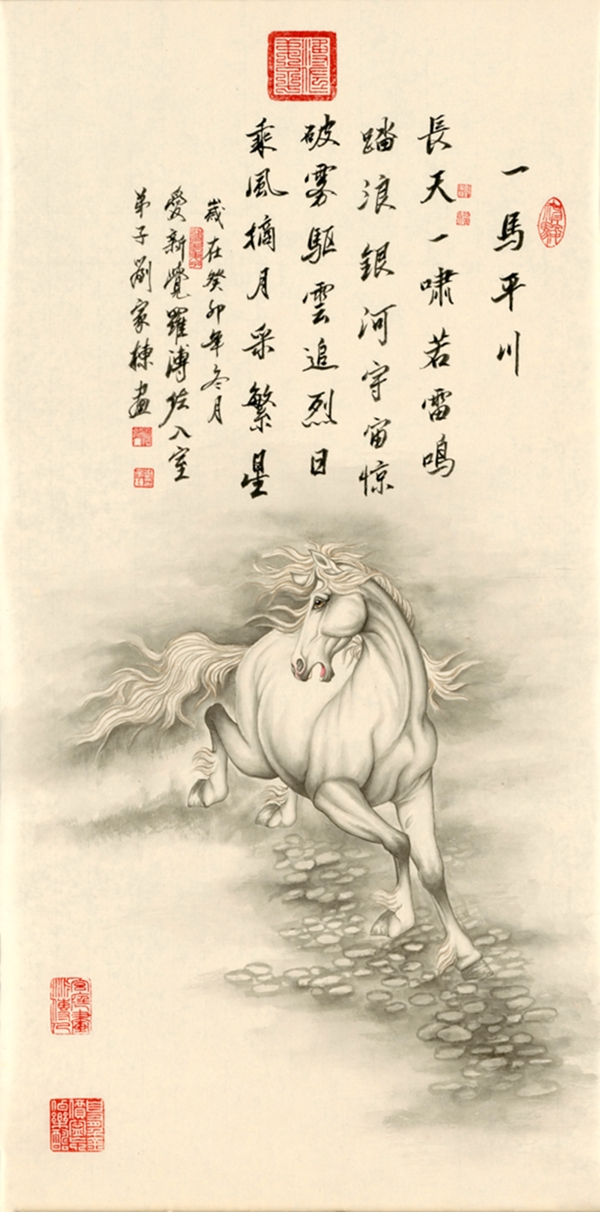 一馬平川
長天一嘯若雷鳴
踏浪銀河宇宙惊
破雾驅雲追烈日
乘風摘月采繁星
歲在癸卯年冬月
愛新覺羅溥佐入室
弟子劉家棟畫